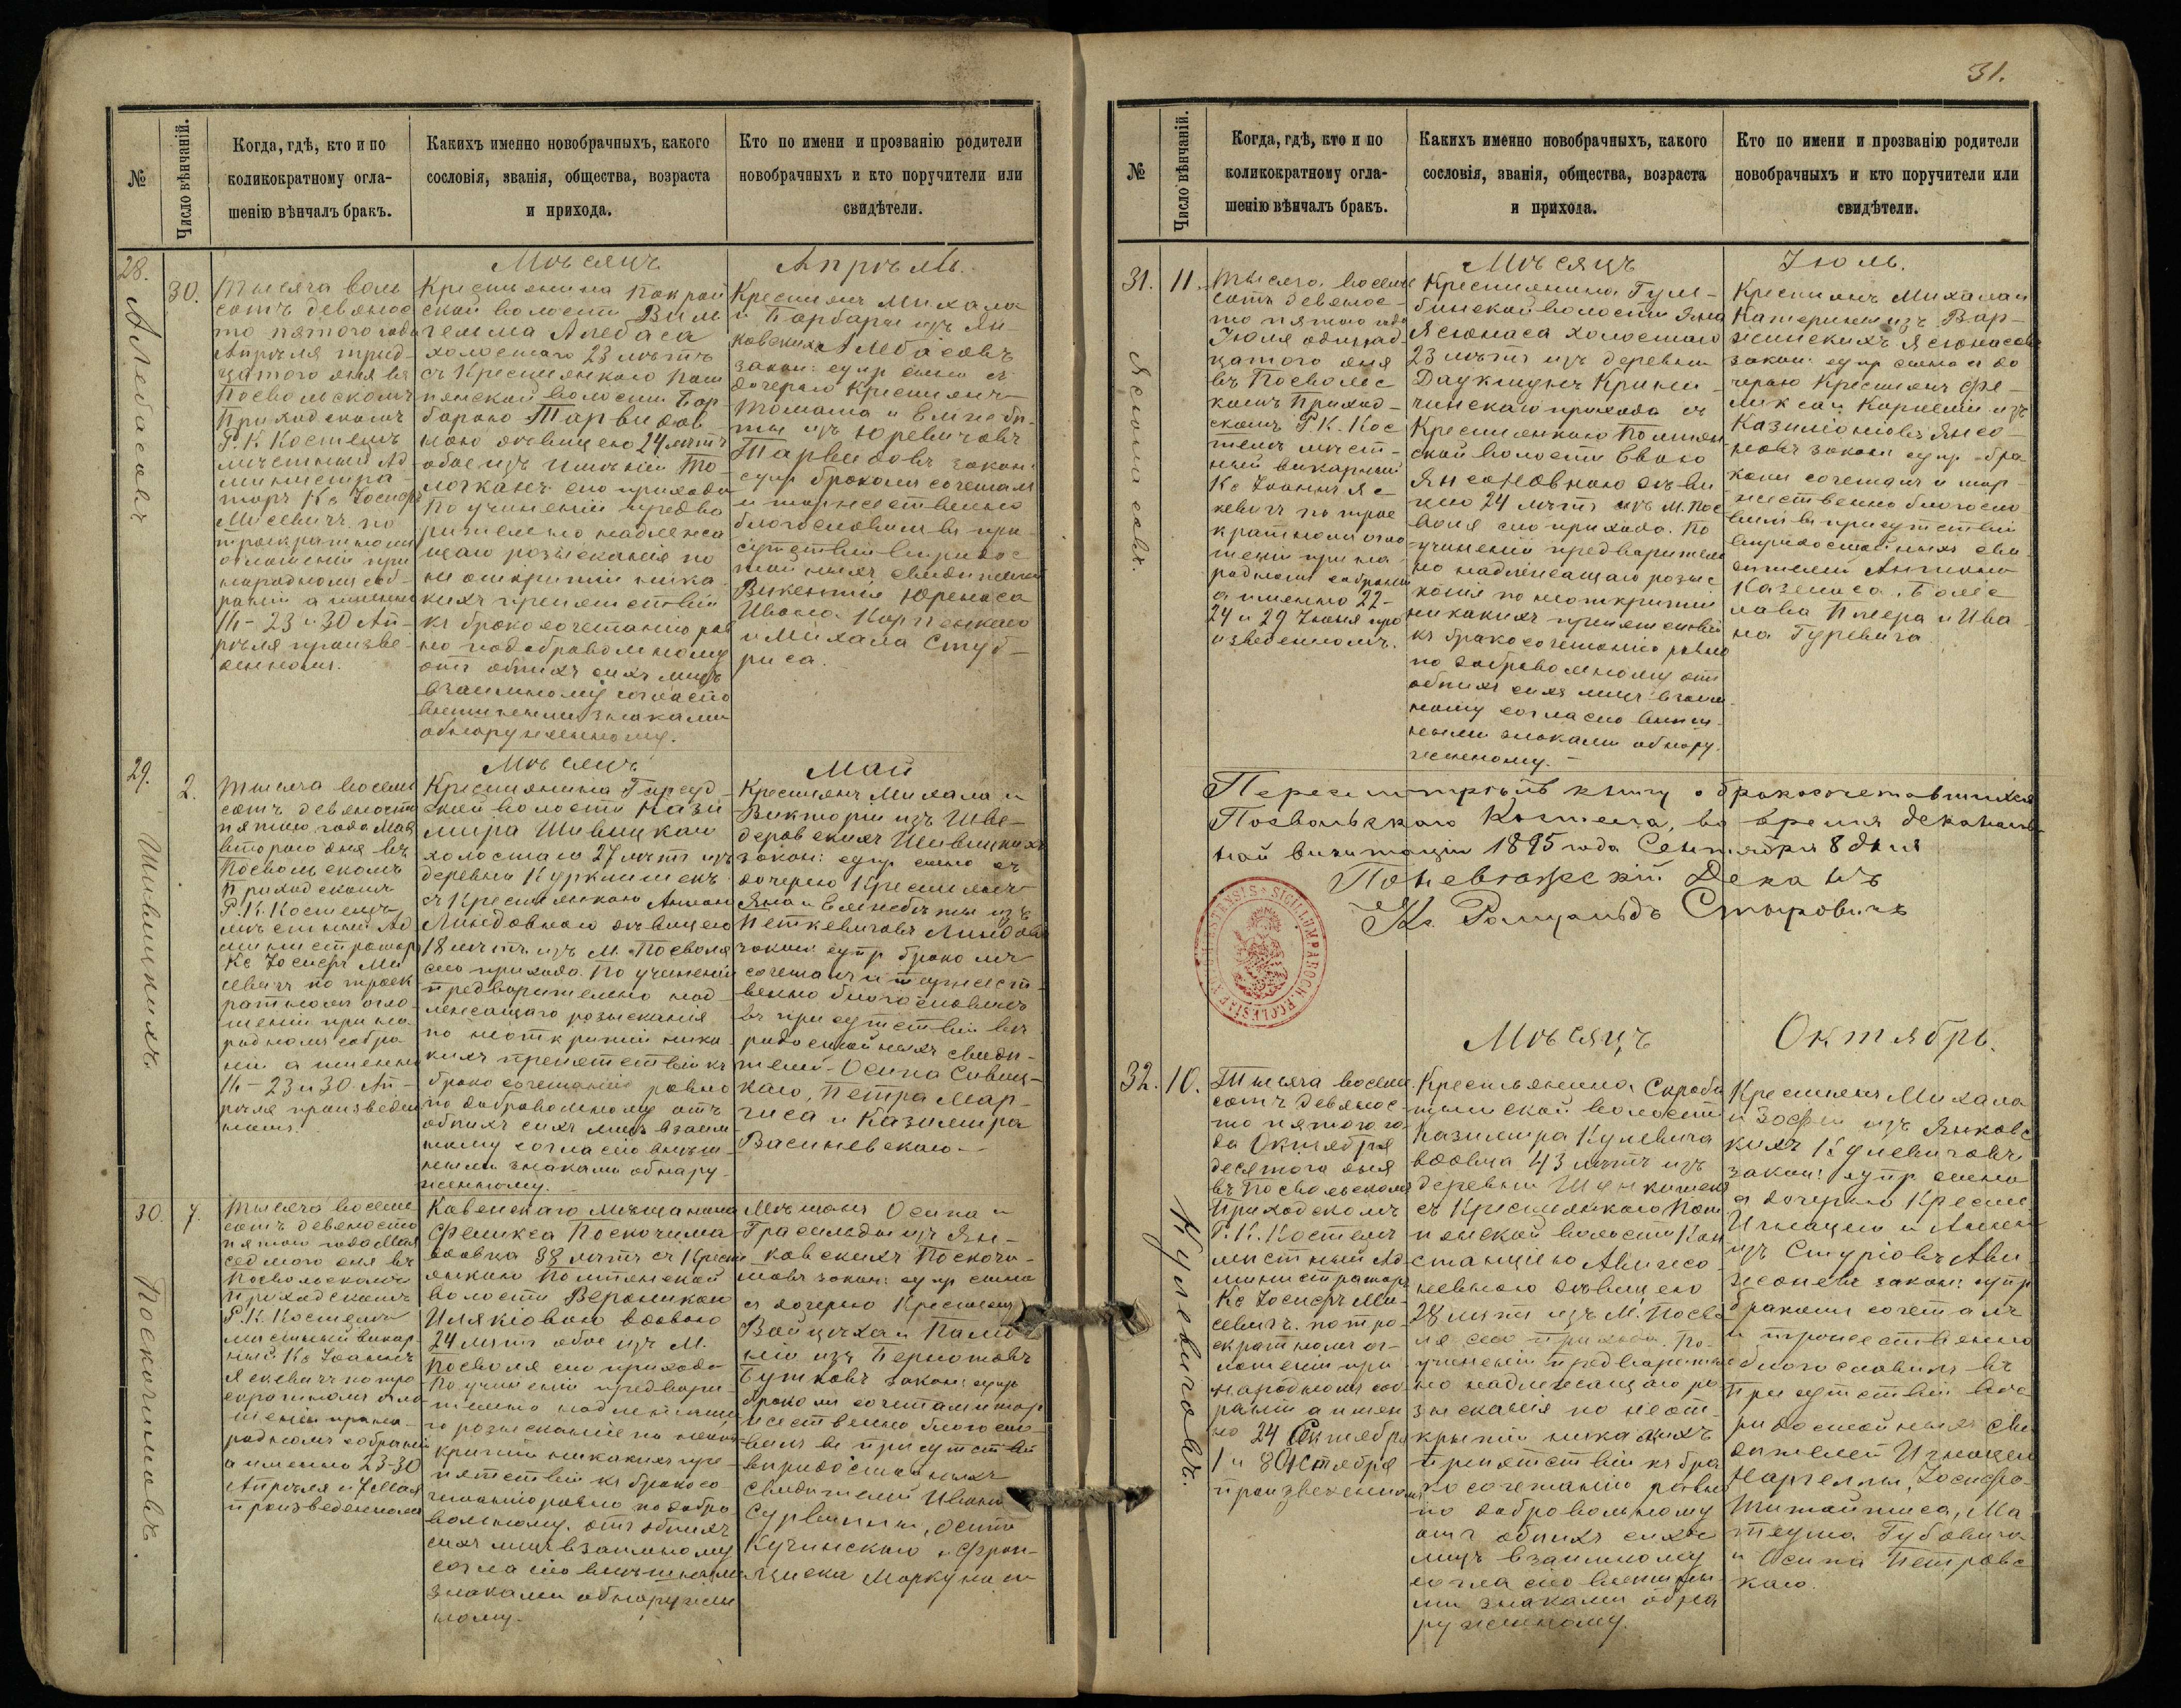 №
Число вѣнчаній.
Когда, гдѣ, кто и по
коликократному огла-
шенію вѣнчалъ бракъ.
Какихъ именно новобрачныхъ, какого
сословія, званія, общества, возраста
и прихода.
Кто по имени и прозванію родители
новобрачныхъ и кто поручители или
свидѣтели.
28.
Алебасовъ
30.
Тысяча восемь
сотъ девянос
то пятого года
Апрѣля трид-
цатого дня въ
Посвольскомъ
Приходскомъ
Р. К. Костелѣ
мѣстный Ад
министра-
торъ Кс Іосифъ
Мисевичъ по
троекратномъ
оглашеніи при
народномъ соб-
раніи а именно
16 - 23 и 30 Ап-
рѣля произве-
денномъ.
Мѣсяцъ
Крестьянина Покрой
ской волости Виль
гельма Алебаса
холостаго 23 лѣтъ
съ Крестьянкою Пом
пянской волости Бар-
барою Тарвидов
ною дѣвицею 24 лѣтъ
обое изъ имѣнія То-
лочканъ сего прихода
По учиненіи предва
рительно надлежа
щаго розысканія по
не открытіи ника
кихъ препятствій
къ бракосочетанію рав
но по добровольному
отъ обѣихъ сихъ лицъ
взаимному согласію
внѣшними знаками
обнаруженному.
Апрѣль.
Крестьянъ Михала
и Барбары изъ Ян-
ковскихъ Алебасовъ
закон: супр сына съ
дочерью Крестьянъ
Томаша и Елисабе-
ты изъ Юревичовъ
Тарвидовъ закон:
супр бракомъ сочеталъ
и торжественно
благословилъ въ при
сутствіи вѣродос
тойныхъ свидѣтелей
Викентія Юренаса
Ивана Карпенкаго
и Михала Стуб-
риса.
29.
Шивицкихъ.
2.
Тысяча восемь
сотъ девяносто
пятого года Мая
второго дня въ
Посвольскомъ
Приходскомъ
Р. К. Костелѣ
мѣстный Ад
министраторъ
Кс Іосифъ Ми
севичъ по троек
ратномъ огла
шеніи при на
родномъ собра
ніи а именно
16 - 23 и 30 Ап-
рѣля произведен
номъ.
Мѣсяцъ
Крестьянина Гирсуд
ской волости Кази
мира Шивицкаго
холостаго 27 лѣтъ изъ
деревни Куркишекъ
съ Крестьянкою Анною
Линдовною дѣвицею
18 лѣтъ изъ М. Посволя
сего прихода. По учиненіи
предварительно над-
лежащаго розысканія
по неоткрытіи ника-
кихъ препятствій къ
бракосочетанію равно
по добровольному отъ
обѣихъ сихъ лицъ взаим
ному согласію внѣш
ними знаками обнару-
женному.
Май
Крестьянъ Михала и
Викторіи изъ Шве-
деровскихъ Шивицкихъ
закон: супр сына съ
дочерью Крестьянъ
Яна и Елисабеты изъ
Петкевичовъ Линдовъ
закон: супр бракомъ
сочеталъ и торжест-
венно благословилъ
въ присутствіи вѣ
родостойныхъ свидѣ-
телей - Осипа Сивиц-
каго, Петра Мар-
гиса и Казимира
Васинскаго -
30.
Поскочимовъ.
7.
Тысяча восемь
сотъ девяносто
пятого года Мая
седмого дня въ
Посвольскомъ
приходскомъ
Р. К. Костелѣ
мѣстный викар-
ный Кс Іоаннъ
Яскевичъ по тро
екратномъ огла
шеніи при на-
родномъ собраніи
а именно 23-30
Апрѣля и 7 Мая
произведенномъ
Ковенскаго мѣщанина
Феликса Поскочима
вдовца 38 лѣтъ съ Крест
янкою Помпянской
волости Вероникою
Илякіовою вдовою
24 лѣтъ обое изъ М.
Посволя сего прихода
По учиненіи предвари-
тельно надлежаща
го розысканія по неот
крытіи никакихъ пре-
пятствій къ бракосо-
четанію равно по добро
вольному отъ обѣихъ
сихъ лицъ взаимному
согласію внѣшними
знаками обнаружен
ному.
Мѣщанъ Осипа и
Грасильды изъ Ян-
ковскихъ Поскочи-
мовъ закон: супр сына
съ дочерью Крестьянъ
Войцѣха и Пало-
ніи изъ Бернотовъ
Бутковъ закон: супр
бракомъ сочеталъ и тор
жественно благосло-
вилъ въ присутствіи
вѣродостойныхъ
свидѣтелей Ивана
Сурвилы, Осипа
Кучинскаго и Фран-
циска Моркунаса
31.
№
Число вѣнчаній.
Когда, гдѣ, кто и по
коликократному огла-
шенію вѣнчалъ бракъ.
Какихъ именно новобрачныхъ, какого
сословія, званія, общества, возраста
и прихода.
Кто по имени и прозванію родители
новобрачныхъ и кто поручители или
свидѣтели.
31.
Ясюнасовъ.
11.
Тысяча восемь
сотъ девянос-
то пятого года
Іюля одиннад-
цатого дня
въ Посволъс
комъ Приход-
скомъ Р. К. Кос
телѣ мѣст-
ный викарный
Кс Іоаннъ Яс-
кевичъ по трое
кратномъ огла
шеніи при на
родномъ собраніи
а именно 22-
24 и 29 Іюня про
изведенномъ.
Мѣсяцъ
Крестьянина Гум-
бинской волости Яна
Ясюнаса холостаго
23 лѣтъ изъ деревни
Даукшунъ Крини-
чинскаго прихода съ
Крестьянкою Помпян
ской волости Евою
Янсоновною дѣви
цею 24 лѣтъ изъ М. Пос
воля сего прихода. По
учиненіи предварительно
но надлежащаго розыс
канія по неоткрытіи
никакихъ препятствій
къ бракосочетанію равно
по добровольному отъ
обѣихъ сихъ лицъ взаим
ному согласію внѣш-
ними знаками обнару-
женному. -
Іюль.
Крестьянъ Михала и
Катерины изъ Вар-
жинскихъ Ясюнасовъ
закон: супр сына съ до
черью Крестьянъ Фе-
ликса и Корнеліи изъ
Казиліоніовъ Янсо-
новъ закон: супр бра-
комъ сочеталъ и тор-
жественно благосло
вилъ въ присутствіи
вѣродостойныхъ сви
дѣтелей Антона
Казенаса, Болес
лава Плера и Ива
на Гуревича.
Пересмотрѣлъ книгу о бракосочетавшихся
Посвольскаго Костела, во время декаталь-
ной визитаціи 1895 года Сентября 8 дня
Поневѣжскій Деканъ
Кс. Ромуальдъ Стыровичъ
32.
Кулевичовъ.
10.
Тысяча восемь
сотъ девянос-
то пятого го-
да Октября
десятого дня
въ Посвольскомъ
Приходскомъ
Р. К. Костелѣ
мѣстный Ад-
министраторъ
Кс Іосифъ Ми-
севичъ по тро-
екратномъ ог-
лашеніи при
народномъ соб
раніи а имен
но 24 Сентября
1 и 8 Октября
произведенномъ
Мѣсяцъ
Крестьянина Скроба
тынской волости
Казимира Кулевича
вдовца 43 лѣтъ изъ
деревни Шункишекъ
съ Крестьянкою Пом
пянской волости Кон
станціею Авижесо-
невною дѣвицею
28 лѣтъ изъ М. Посво
ля сего прихода. По-
учиненіи предваритель
но надлежащаго ро
зысканія по неот-
крытіи никакихъ
препятствій къ бра
косочетанію равно
по добровольному
отъ обѣихъ сихъ
лицъ взаимному
согласію внѣшны-
ми знаками обна
руженному.
Октябрь.
Крестьянъ Михала
и Зофіи изъ Янковс
кихъ Кулевичовъ
закон: супр сына
съ дочерью Крестьянъ
Игнація и Анны
изъ Стуріовъ Ави
жесоневъ закон: супр
бракомъ сочеталъ
и торжественно
благословилъ въ
присутствіи вѣ-
родостойныхъ Сви
дѣтелей Игнація
Норгелы, Іосифа
Шитайтиса, Ма
теуша Губовича
и Осипа Петровс
каго.